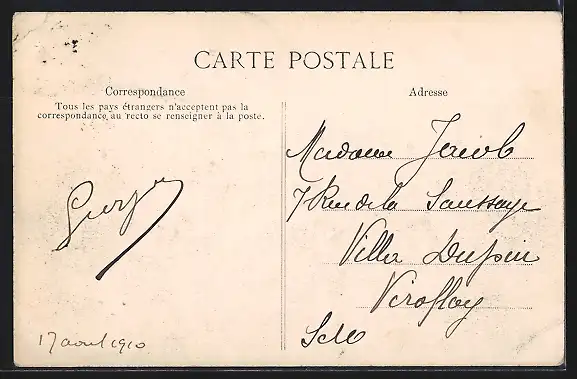 CARTE POSTALE
Correspondance
Tous les pays étrangers n'acceptent pas la
correspondance au recto se renseigner à la poste.
Georges
17 aout 1910
Adresse
Madame Jacob
7 Rue de la Saussaye
Villa Dupin
Viroflay
S et O